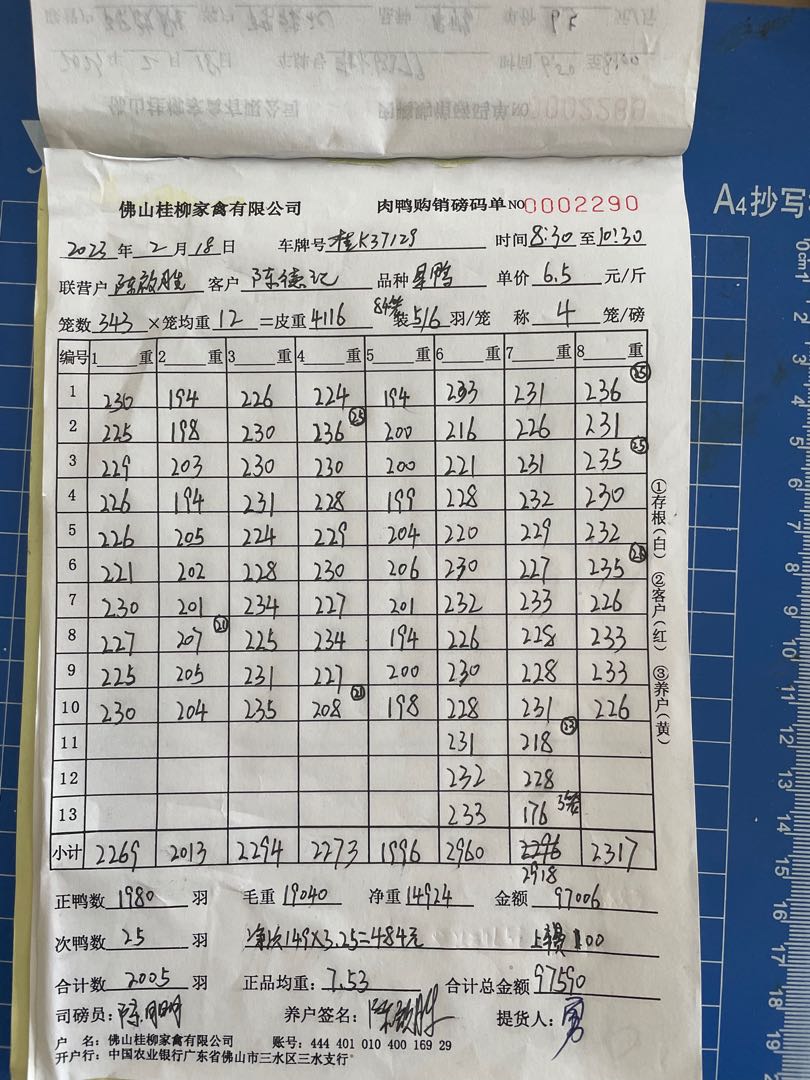 佛山桂柳家禽有限公司 肉鸭购销磅码单 NO 0002290
2023 年 2 月 18 日 车牌号 桂K37129 时间 8:30 至 10:30
联营户 陈啟胜 客户 陈德记 品种 单价 6.5 元/斤
笼数 343 ×笼均重 12 =皮重 4116 84笼 装 5/6 羽/笼 称 4 笼/磅
编号 1 重 2 重 3 重 4 重 5 重 6 重 7 重 8 重
1 230 194 226 224 194 233 231 236 25
2 225 198 230 236 25 200 216 226 231
3 229 203 230 230 200 221 231 235 25
4 226 194 231 228 199 228 232 230
5 226 205 224 229 204 220 229 232
6 221 202 228 230 206 230 227 235
7 230 201 234 227 201 232 233 226
8 227 207 21 225 234 194 226 228 233
9 225 205 231 227 200 230 228 233
10 230 204 235 208 21 198 228 231 226
11 231 218
12 232 228
13 233 176 3笼
小计 2269 2013 2294 2273 1996 2960 2296 2317
2918
正鸭数 1980 羽 毛重 19040 净重 14924 金额 97006
次鸭数 25 羽 149×3.25=484元 100
合计数 2005 羽 正品均重: 7.53 合计总金额 97590
司磅员: 养户签名: 陈啟胜 提货人: 勇
户 名: 佛山桂柳家禽有限公司 账号: 444 401 010 400 169 29
开户行: 中国农业银行广东省佛山市三水区三水支行
①存根(白) ②客户(红) ③养户(黄)
A4抄写
0 cm 1 2 3 4 5 6 7 8 9 10 11 12 13 14 15 16 17 18 19